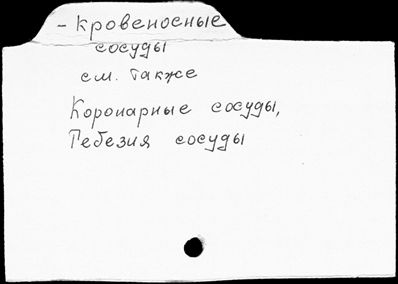 - Кровеносные
сосуды
см. также
Коронарные сосуды,
Тебезия сосуды